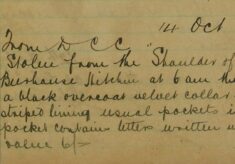 14 Oct
From D C C
Stolen from the "Shoulder of
Beerhouse Hitchin at 6 am th
a black overcoat velvet collar
striped lining usual pockets i
pocket contains letters written
value 6/-